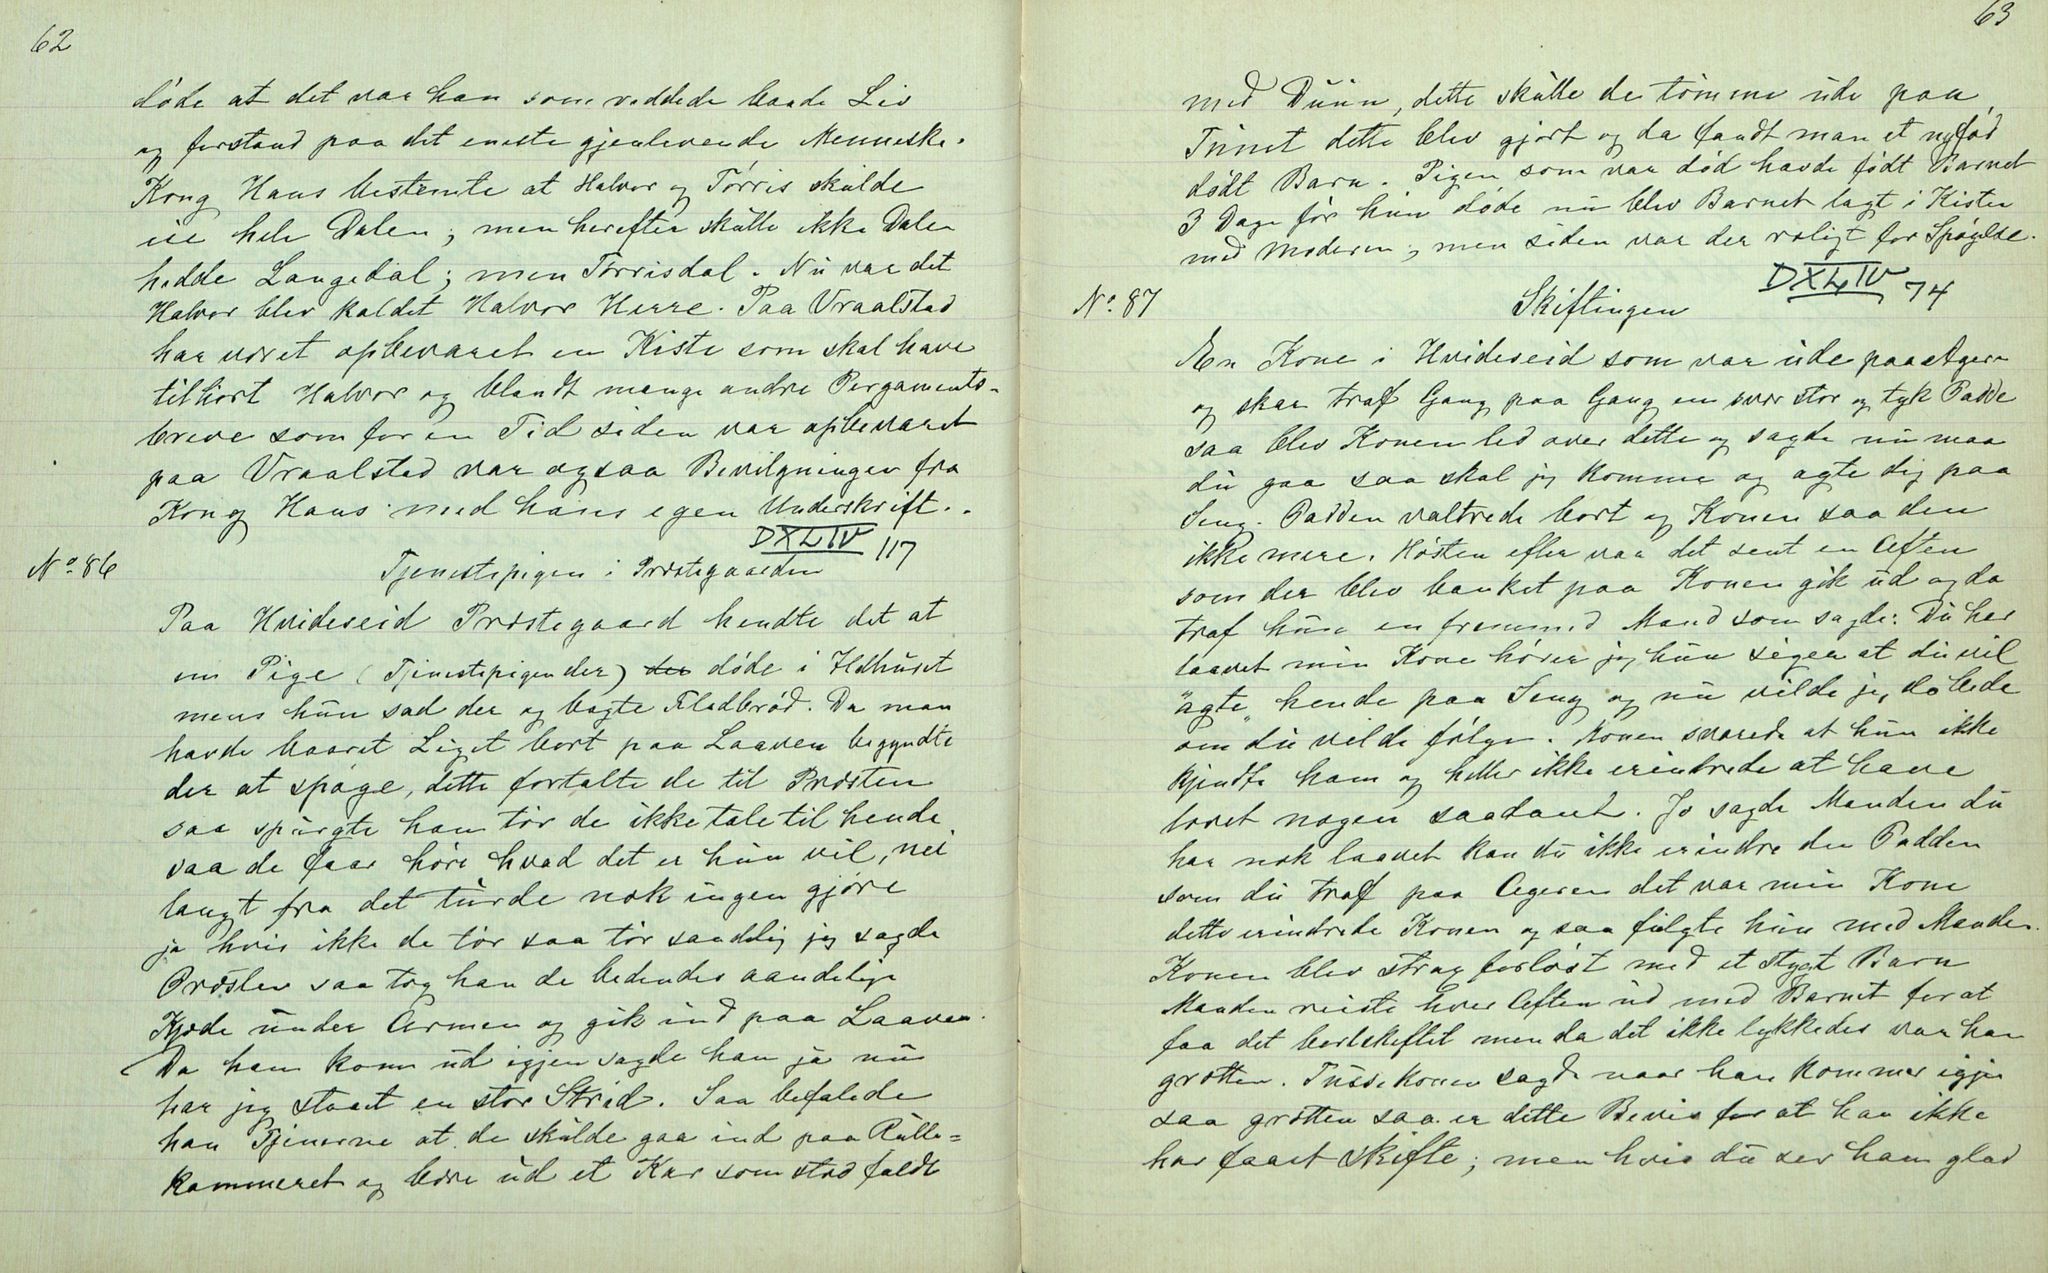 62
døde at det var han som reddede baade Liv
og forstand paa det eneste gjenlevende Menneske.
Kong Hans bestemte at Halvor og Tørris skulde
eie hele Dalen; men herefter skulle ikke Dalen
hedde Langedal; men Tørrisdal. Nu var det
Halvor blev kaldet Halvor Herre. Paa Vraalstad
har været opbevaret en Kiste som skal have
tilhört Halvor og blandt mange andre Pergaments-
breve som for en Tid siden var opbevaret
paa Vraalstad var ogsaa Bevilgningen fra
Kong Hans med hans egen Underskrift.
DXLIV 117
No. 86
Tjenestepigen i Præstegaarden
Paa Hvideseid Præstegaard hendte det at
en Pige (Tjenestepigen der) der døde i Ildhuset
mens hun sad der og bagte Fladbrød. Da man
havde baaret Liget bort paa Laaven begyndte
der at spøge, dette fortalte de til Præsten
saa spurgte han tør de ikke tale til hende
saa de faar høre hvad det er hun vil, nei
langt fra det turde nok ingen gjøre
ja hvis ikke de tør saa tør sandelig jeg sagde
Præsten saa tog han de bedendes aandelige
Kjæde under Armen og gik ind paa Laaven.
Da han kom ud igjen sagde han ja nu
har jeg staaet en stor Strid. Saa befalede
han Tjenerne at de skulde gaa ind paa Rulle=
kammeret og bære ud et Kar som stod fuldt
63
med Duun, dette skulle de tømme ude paa
Tunet dette blev gjort og da fandt man et nyfød
dödt Barn. Pigen som var død havde født Barnet
3 Dage før hun døde nu blev Barnet lagt i Kisten
med Moderen; men siden var der roligt for Spögelse.
DXLIV 74
No. 87
Skiftingen
En Kone i Hvideseid som var ude paa Ageren
og skar traf Gang paa Gang en svær stor og tyk Padde
saa blev Konen led over dette og sagde nu maa
du gaa saa skal jeg komme og agte dig paa
Seng. Padden valtrede bort og Konen saa den
ikke mere. Høsten efter var det sent en Aften
som der blev banket paa Konen gik ud og da
traf hun en fremmed Mand som sagde: Du har
laavet min Kone hører jeg hun siger at du vil
"agte" hende paa Seng og nu vilde jeg da bede
om du vilde følge. Konen svarede at hun ikke
kjendte ham og heller ikke erindrede at have
lovet nogen saadant. Jo sagde Manden du
har nok laavet kan du ikke erindre den Padden
som du traf paa Ageren det var min Kone
dette erindrede Konen og saa fulgte hun med Manden.
Konen blev strax forløst med et stygt Barn
Manden reiste hver Aften ud med Barnet for at
faa det bortskiftet men da det ikke lykkedes var han
grætten. Tussekonen sagde naar han kommer igjen
saa grætten saa er dette Bevis for at han ikke
har faaet skifte; men hvis du ser ham glad